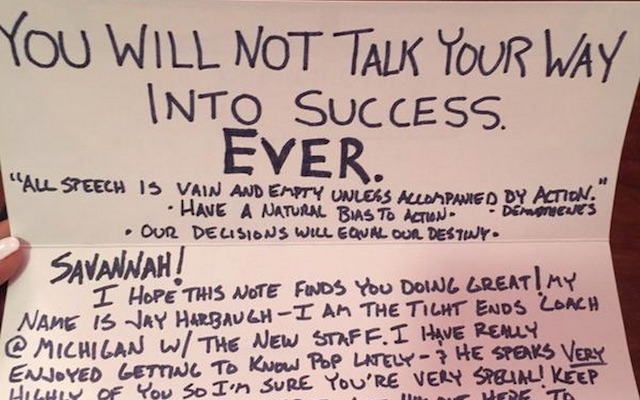 YOU WILL NOT TALK YOUR WAY
INTO SUCCESS.
EVER.
"ALL SPEECH IS VAIN AND EMPTY UNLESS ACCOMPANIED BY ACTION."
• HAVE A NATURAL BIAS TO ACTION • - DEMOSTHENES
• OUR DECISIONS WILL EQUAL OUR DESTINY •
SAVANNAH!
I HOPE THIS NOTE FINDS YOU DOING GREAT! MY
NAME IS JAY HARBAUGH - I AM THE TIGHT ENDS COACH
@ MICHIGAN W/ THE NEW STAFF. I HAVE REALLY
ENJOYED GETTING TO KNOW POP LATELY - & HE SPEAKS VERY
HIGHLY OF YOU SO I'M SURE YOU'RE VERY SPECIAL! KEEP
HERE TO